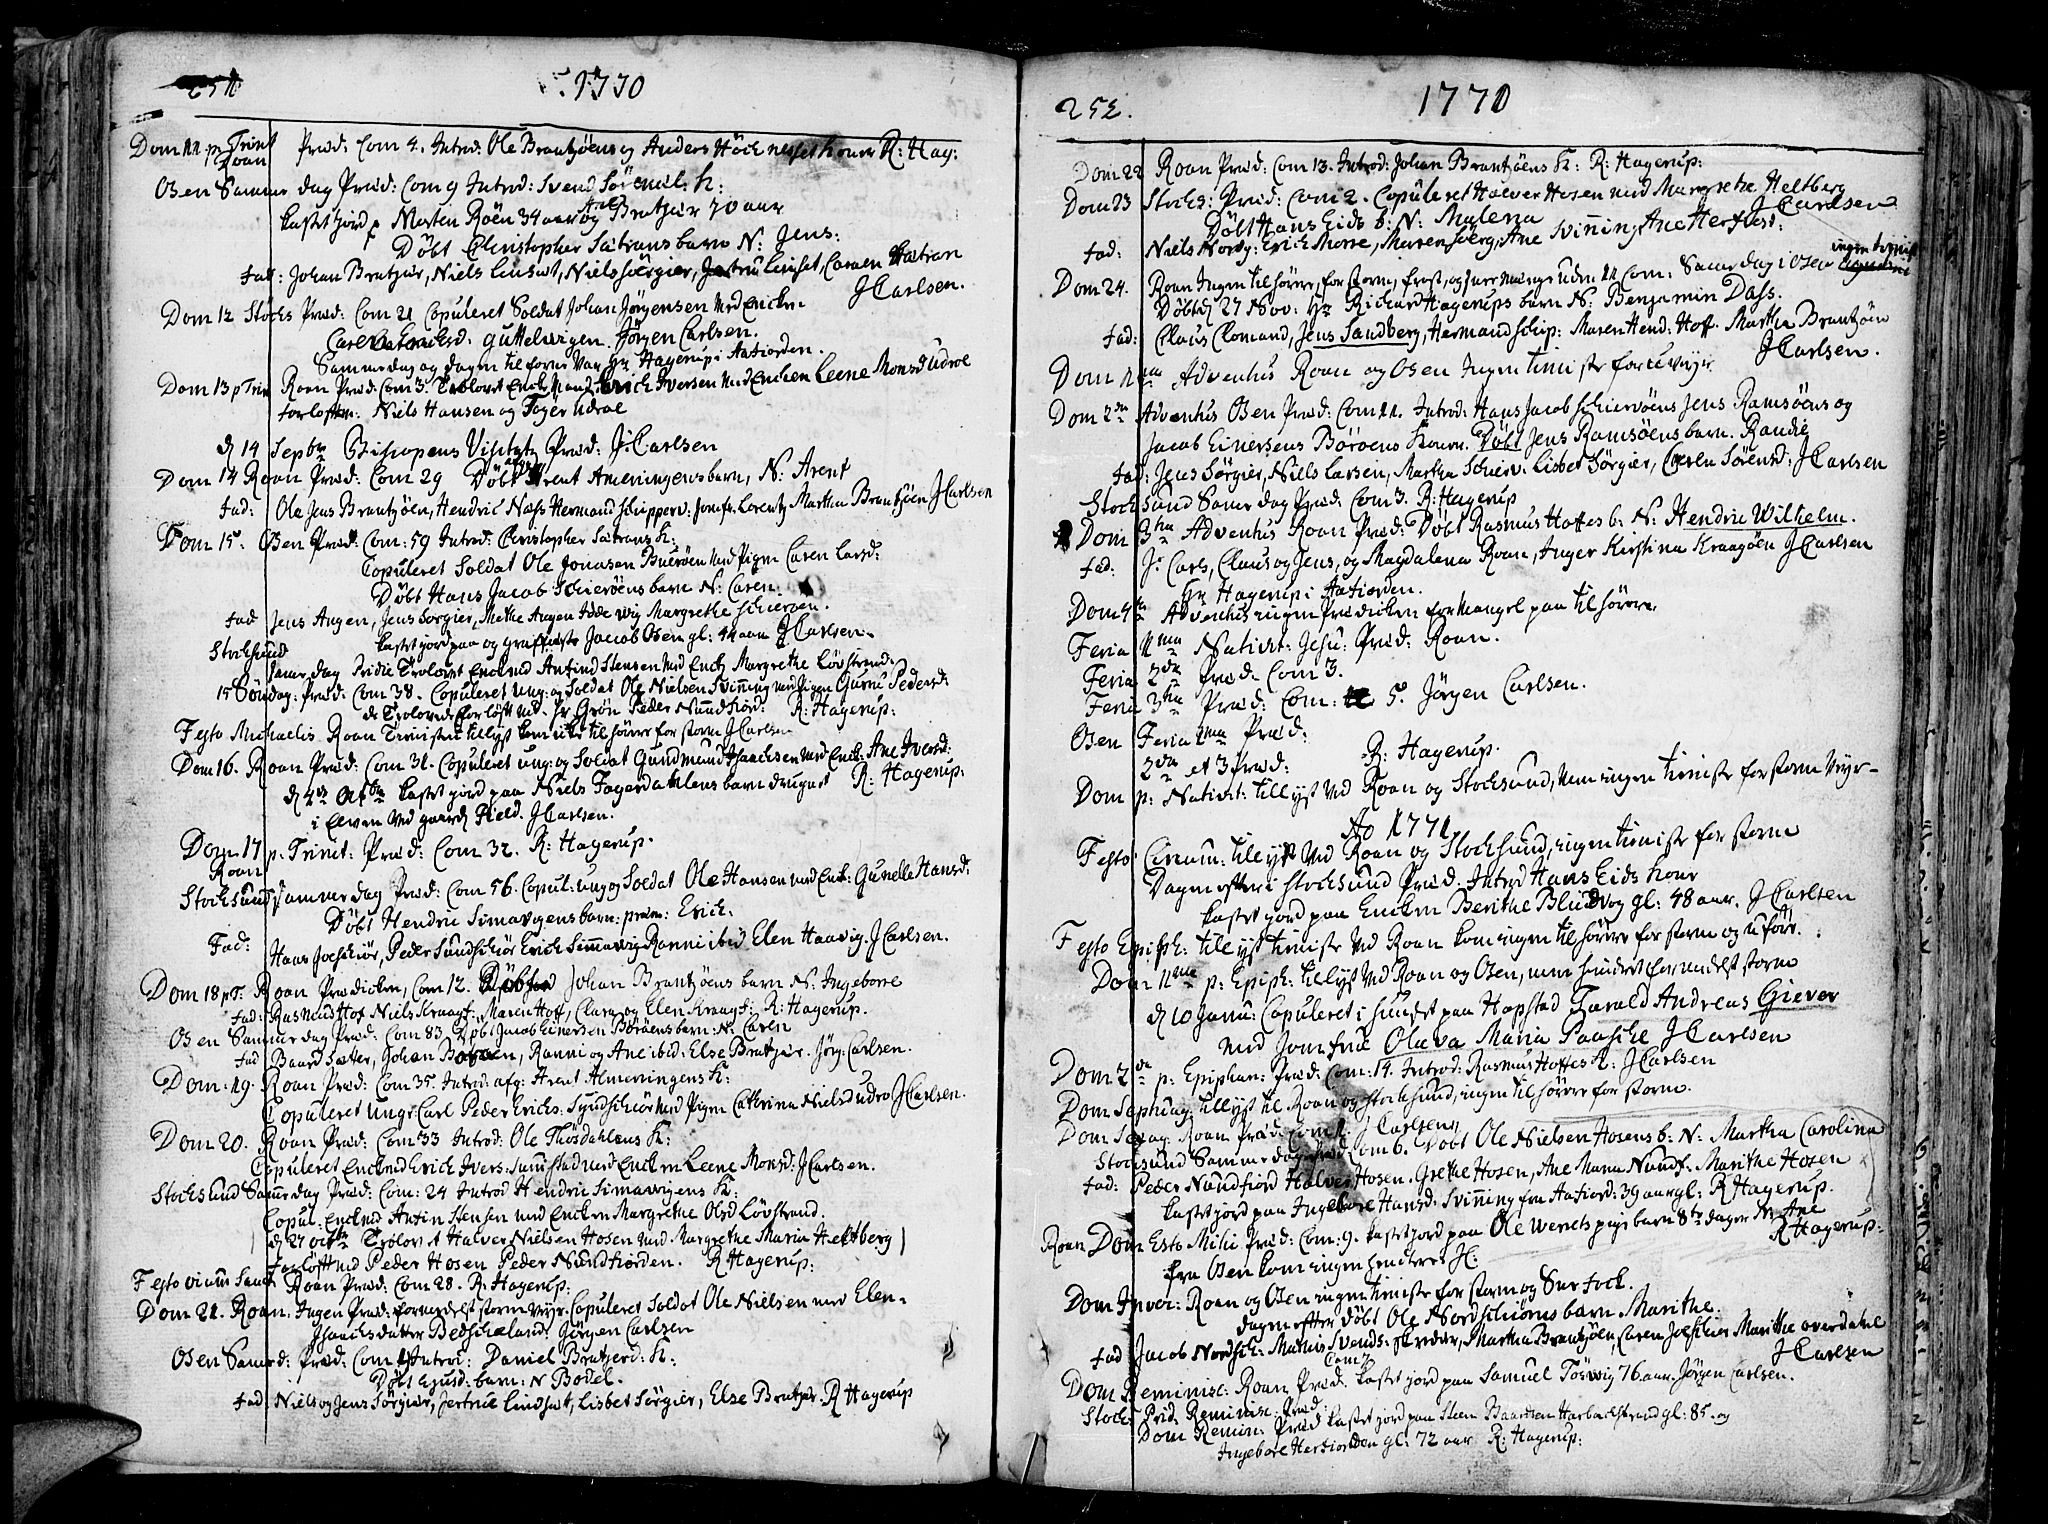 251
1770
Dom 11 p Trinit Præd: Com 4. Introd: Ole Brantzöens og Anders Höch nesset koner R: Hag:
Roan
Osen Sammer dag Præd: Com 9 Introd: Svend Sörenus: K:
kastet jord p Morten Roen 34 aar og Bratjær 70 aar
Döbt Christopher Sætrans barn N: Jens:
fad: Johan Bratjær, Niels Linset, Niels Sörgier, Linset, Caren Hatran
J Carlsen.
Dom 12 Stocs Præd: Com 21 Copuleret Soldat Johan Jörgensen med Enche
Caren guttelvigen. Jörgen Carlsen.
Sammerdag og dagen til forne var Hr Hagerup i Aafiorden.
Dom 13 p Trin Roan Præd: Com 3. Trolovet Enck Mand Erich Iversen med Enchen Leene Monsd Udroe
forlofter: Niels Hansen og Udroe
d 14 Septbr Bishopens Visitatz Præd: J: Carlsen
Dom 14 Roan Præd: Com 29 Döbt Arent Ameningens barn, N: Arent
fad: Ole Jens Brantzöen, Hendric Næss Hermand schipperv: Jomfr: Lorentz Martha Brantzöen J Carlsen
Dom 15. Osen Præd: Com: 59 Introd: Christopher Sætrans K:
Copuleret Soldat Ole Jonasen Bueröen med Pigen Caren Larsd:
Döbt Hans Jacob Schieröens barn N: Caren.
fad Jens Angen, Jens Sörgier, Methe Angen wig Margrethe Schieröen.
kastet jord paa og Jacob Osen gl: aar J Carlsen.
Stocksund
Samer dag Pridie Trolovet Enckmd Antind Stensen med Enck Margrethe Lövstrand.
15 Söndag: Præd: Com 38. Copuleret ung: og Soldat Ole Nielsen Svinning med Pigen Guru Pedersd:
de Trolovede forlöft ved Sr Grön Peder Nundfiord: R: Hagerup:
Festo Michaelis. Roan Tienisten tillyst kom ike til hörer for storm J Carlsen
Dom 16. Roan Præd: Com 31. Copuleret ung: og Soldat Gundmund Isaachsen med Enck: Ane Iversd:
d 4de Octbr kastet jord paa Niels Fagerdahlens barn druknet R: Hagerup:
i Elven ved gaard Field. J Carlsen.
Dom 17 p. Trinit: Præd: Com 32. R: Hagerup.
Roan
Stocksund Sammer dag Præd: Com 56. Copul: ung og Soldat Ole Hansen med Enk: Gunelle Hansd:
Döbt Hendric Simavigens barn: Erich.
Fad: Hans Joeschiör, Peder Sundschiör Erich Simmavig Ranni ibid Elen Haavig. J Carlsen.
Dom 18 p T: Roan Prædicken, Com 12. Johan Brantzöens barn N: Ingebore
fad: Rasmus Hof Niels Kraagf: Maren Hoff, Clara og Elen Kraagf: R: Hagerup.
Osen Sammer dag Præd: Com 83 Döbt Jacob Einersen Börøens barn N: Caren
fad Baard Sætter, Johan, Ranni og Ane ibid: Else Bratjær. Jörg: Carlsen.
Dom: 19: Roan Præd: Com 35. Introd: afg: Arent Almeningens K:
Copuleret Ungr Carl Peder Erichs: Sundschiör med Pigen Cathrina Nielsd udro J Carlsen.
Dom 20. Roan Præd: Com 33 Introd: Ole Thösdahlens K:
Copuleret Enckmd Erich Ivers: Sumstad med Encken Leene Monsd: J Carlsen.
Stocksund Samr dag Præd: Com: 24 Introd Hendric Simavigens K:
Copul: Enckmd Antin Stensen med Encken Margrethe Olsd Lövstrand.
d 27 octbr Trolovet Halver Nielsen Hosen med Margrethe Maria Heltberg
forlöft ved Peder Hosen Peder Nundfiorden. R Hagerup:
Festo omium Sanct Roan Præd: Com 28. R: Hagerup:
Dom 21. Roan: Ingen Præd: formedelst storm veyr. Copuleret Soldat Ole Nielsen med Elen
Isaachsdatter Bedschieland. Jörgen Carlsen
Osen Samrd: Præd: Com Introd: Daniel Bratjerd: K:
Döbt barn: N Bodel.
fad: Niels og Jens Sörgier, Jertrue Lindsæt, Lisbet Sörgier, Else Bratjær. R Hagerup
252.
1770
Dom 22 Roan Præd: Com 13. Introd: Johan Brantzöens K: R: Hagerup:
Dom 23 Stocks: Præd: Com 2. Copuleret Halver Hosen med Margrethe Heltberg
Döbt Hans Eids b: N: Malena J Carlsen
fad: Niels Nordg: Erich Morre, Maren Söerg, Ane Svinning Ane Herfiord:
Dom 24. Roan Ingen til hörer, for storm, frost, og Com: Samerdag i Osen ingen tienist
Döbt d 27 Nov: Hr Richard Hagerups barn N: Benjamin Dass.
fad: Claus Clomand, Jens Sandberg, Hermand schip: Maren Hend: Hof. Martha Brantzöen
J Carlsen.
Dom 1ma Adventus Roan og Osen Ingen tieniste for uveyr
Dom 2da Adventus Osen Præd: Com 11. Introd: Hans Jacob Schiervöens Jens Ramsöens og
Jacob Einersens Böröens Koner. Döbt Jens Ramsöens barn. Randie
fad: Jens Sörgier, Niels Larsen, Martha Schierv: Lisbet Sörgier, Caren Sörensd: J Carlsen
Stocksund Samer dag Præd: Com 3. R: Hagerup
Dom 3tia Adventus Roan Præd: Döbt Rasmus Hoffes b: N: Hendric Wilhelm.
fad: J: Carls, Claus og Jens, og Magdalena Roan, Inger Kirstina Kraagöen J Carlsen
Hr Hagerup i Aafiorden.
Dom 4ta Adventus ingen Prædicken for Mangel paa til hörere
Feria 1ma Nativit: Jesu: Præd: Roan.
Feria 2da Præd: Com 3.
Feria 3tia Præd: Com: 5. Jörgen Carlsen.
Osen Feria 1ma Præd:
2da et 3 præd: R: Hagerup.
Dom p: Nativit: tillyst ved Roan og Stocksund, men ingen tieniste for storm veyr
Ao 1771
Festo Circum: tillyst ved Roan og Stocksund, ingen tieniste for storm
Dagen efter i Stocksund Præd: Introd Hans Eids kone
kastet jord paa Encken Berithe Blindvog gl: 48 aar. J Carlsen
Festo Epiph: tillyst tieniste ved Roan kom ingen til hörere for storm og uföre.
Dom 1ma p: Epiph: tillyst ved Roan og Osen, men hindret formedelst storm
d 10 Janu: Copuleret i huuset paa Hopstad Tarald Andreas Giever
med Jomfrue Olava Maria Paasche J Carlsen
Dom 2da p: Epiphan: Præd: Com: 14. Introd: Rasmus Hoffes K: J Carlsen
Dom Septuag: tillyst til Roan og Stocksund, ingen til hörere for storm.
Dom Sexag: Roan Præd: J Carlsen
Stocksund Sammer dag Præd Com 6. Döbt Ole Nielsen Hosens b: N: Martha Carolina
fad: Peder Nundfiord Halver Hosen. Grethe Hosen, Ane Maria Nundf: Marithe Hosen
kastet jord paa Ingebore Hansd: Svinning fra Aafiord: 39 aar gl: R Hagerup.
Roan Dom Esto Mihi Præd: Com: 9. kastet jord paa Ole Werets piges barn 8te dager N: Ane
fra Osen kom ingen R Hagerup:
Dom Invoc: Roan og Osen ingen tieniste for storm og Snefock.
dagen efter döbt Ole Nordschiörens barn Marithe.
fad Jacob Nordsch: Mathis Svends: Skreder, Martha Brantzöen, Caren Joeschier Marithe overdahl
J Carlsen
Dom Reminisc: Roan Præd: Com 7 kastet jord paa Samuel Tösvig 76 aar. Jörgen Carlsen.
Stock: Prid Reminisc: Præd:
Dom Remin: Præd kastet jord paa Steen Baardsen Harbachstrand gl: 85. og
Ingebore Herfiorden gl: 72 aar R: Hagerup: